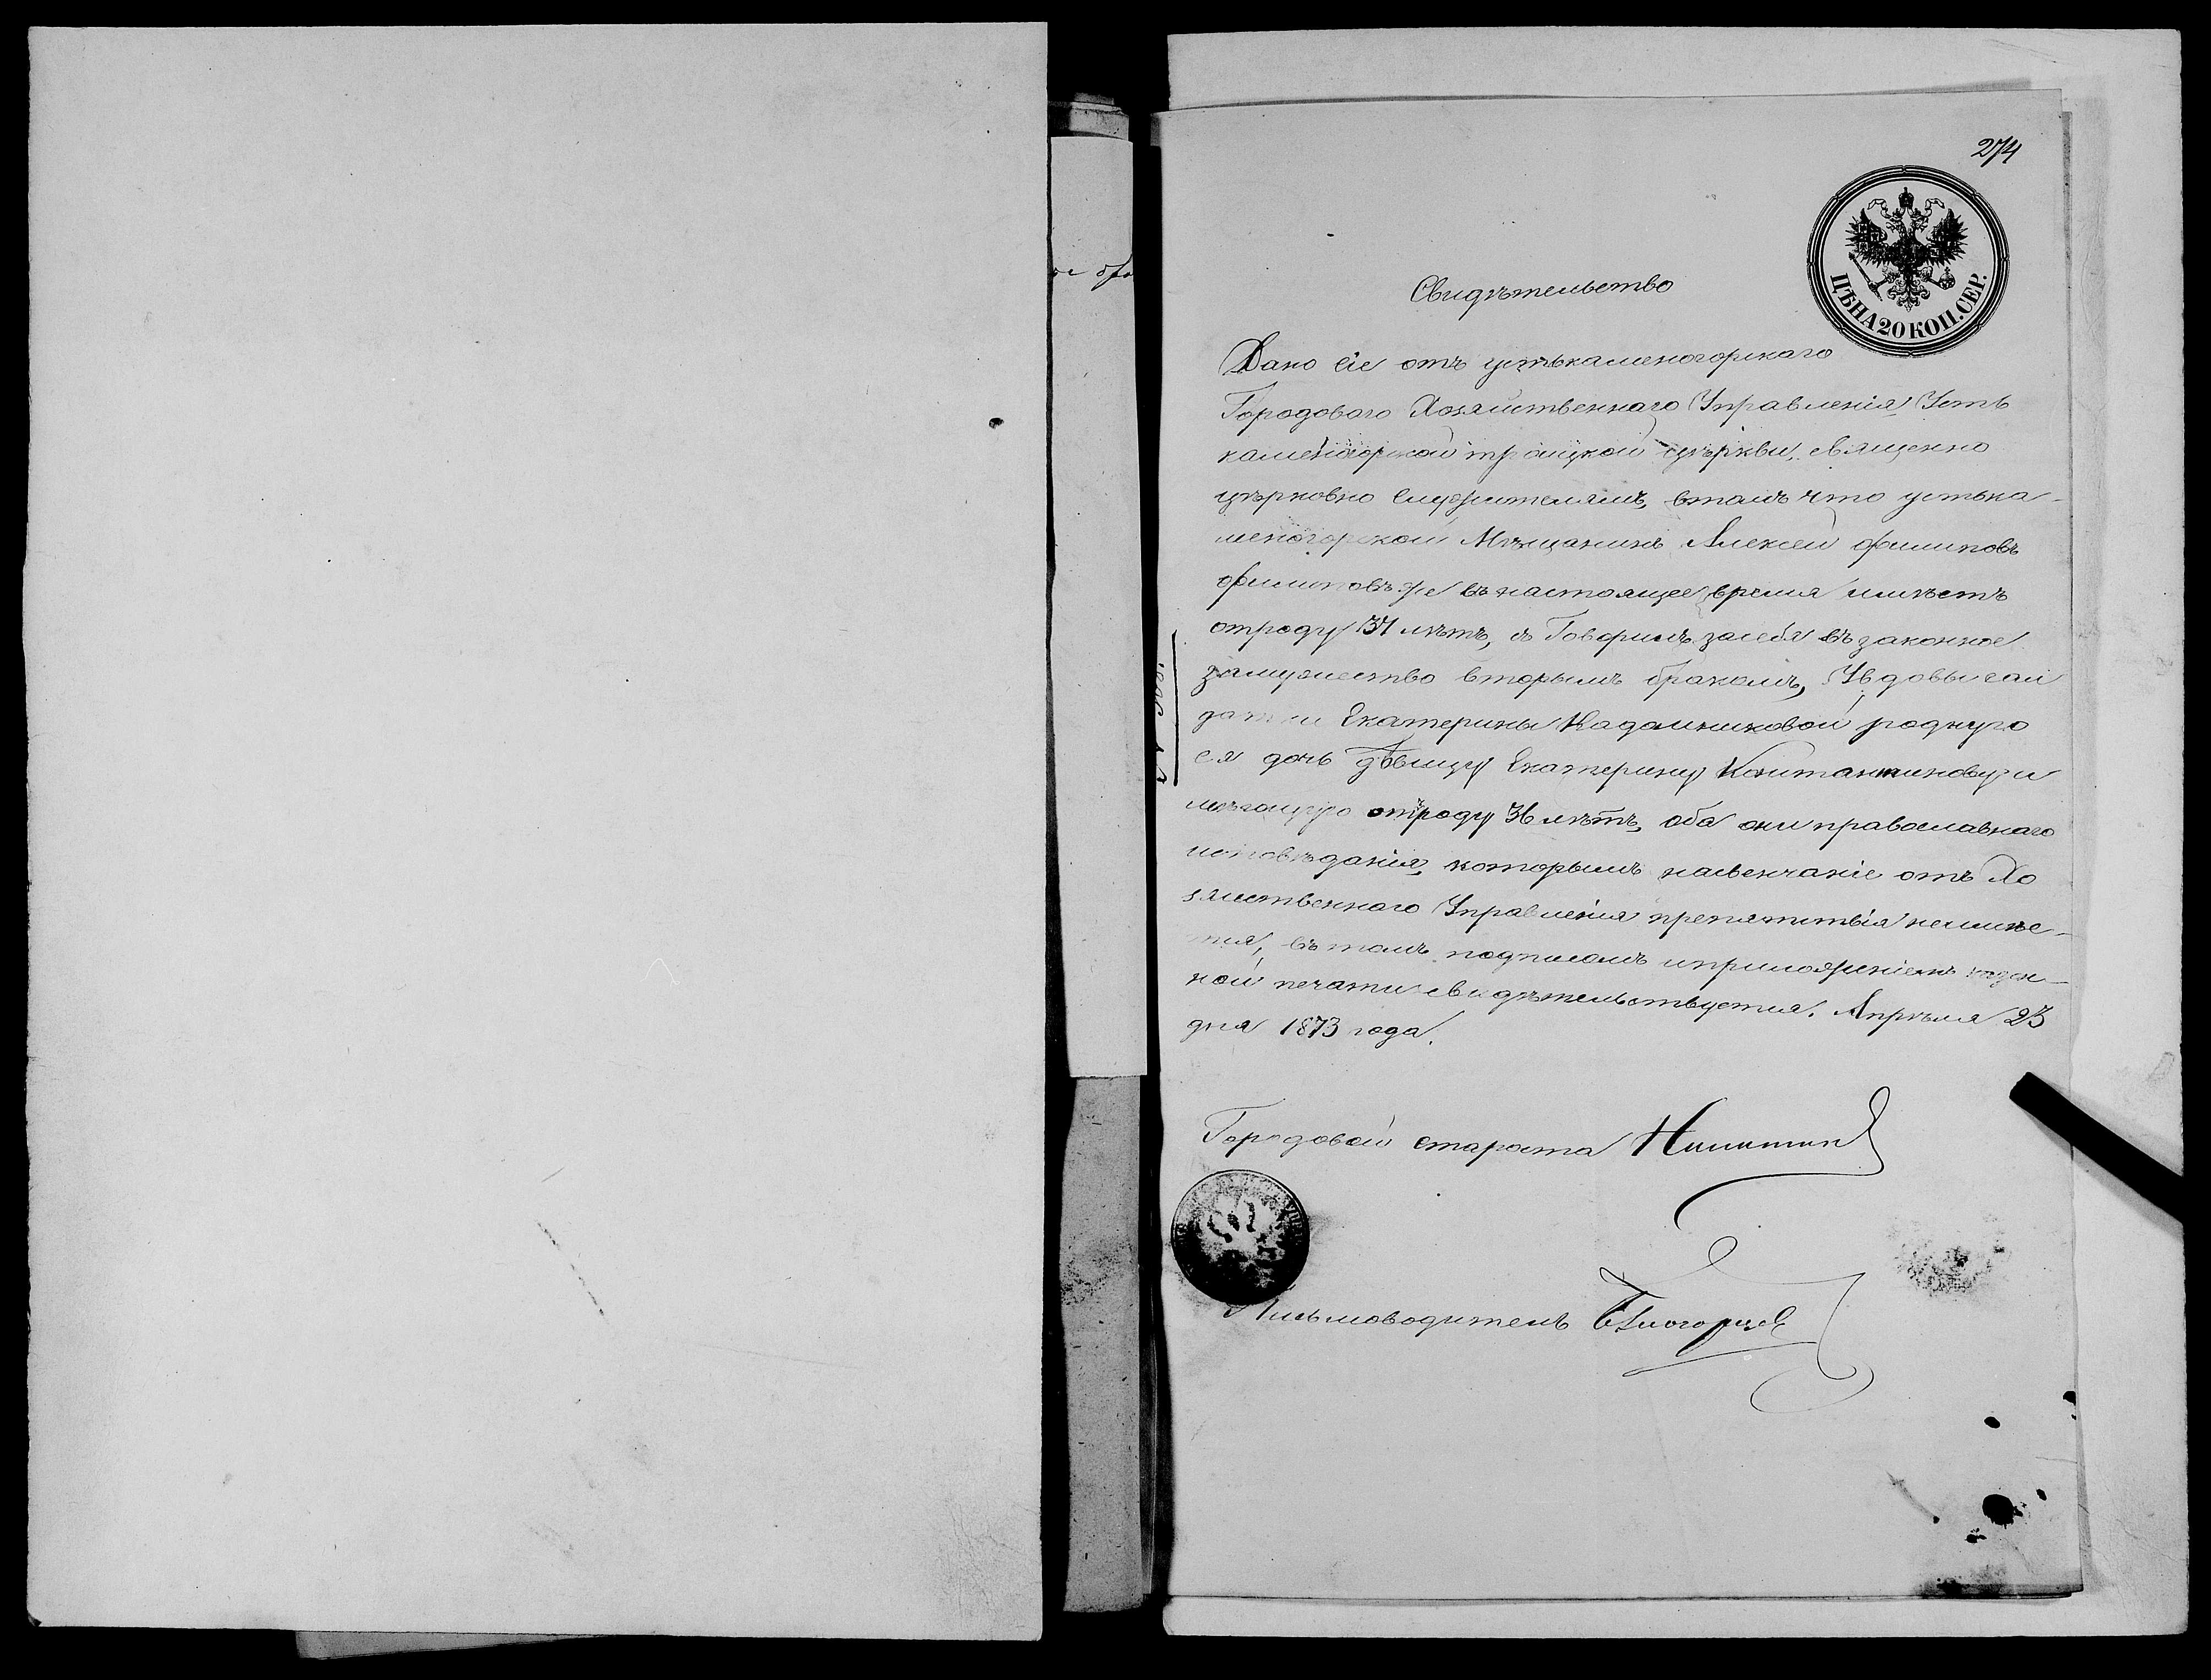 274
ЦѢНА 20 КОП. СЕР.
Свидѣтельство
Дано сіе отъ устькаменогорскаго
Городоваго Хозяйственнаго Управленія Усть
каменогорской троицкой церкви, священно
цѣрковно служителямъ, втомъ что устька-
меногорской Мѣщанинъ Алексей филиповъ
филиповъ же въ настоящее время имѣетъ
отроду 37 лѣтъ, за себя въ законное
замужество вторымъ бракомъ, Увдовы сол
датки Екатерины родную
ея дочь дѣвицу Екатерину Константинову и
мѣющую отроду 36 лѣтъ, оба они православнаго
исповѣданія, которымъ навенчаніе отъ Хо
зяйственнаго Управленія препятствія неимѣе-
тся, въ томъ подписомъ иприложеніемъ казен-
ной печати свидѣтельствуется. Апрѣля 23
дня 1873 года.
Городовой староста Никитин
Письмоводитель